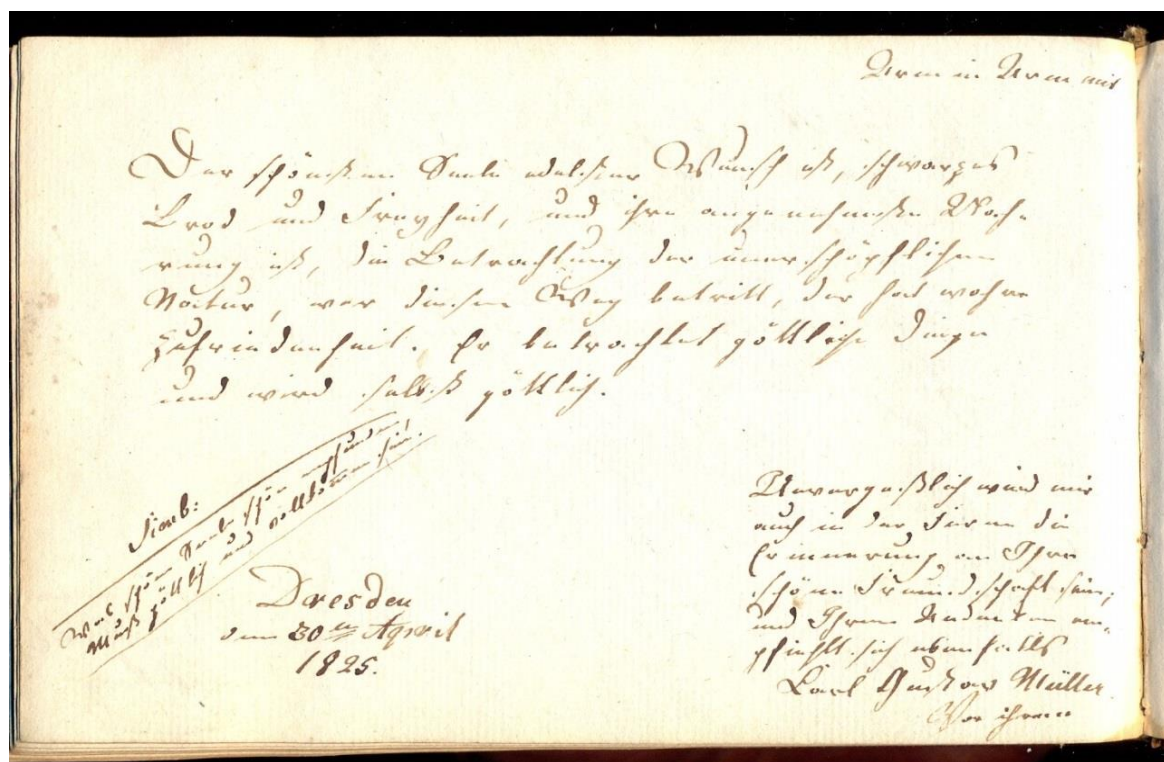 Arm in Arm mit
Der schönsten Seele edelster Wunsch ist, schwarzes
Brod und Freyheit, und ihre angenehmste Nah-
rung ist, die Betrachtung der unerschöpflichen
Natur, wer diesen Weg betritt, der hat wahre
Zufriedenheit. Er betrachtet göttliche Dinge
und wird selbst göttlich.
Symb:
Was schöne Seelen schön empfunden
Muß göttlich und vollkommen sein.
Dresden
den 30ten April
1825.
Unvergeßlich wird mir
auch in der Ferne die
Erinnerung an Ihre
schöne Freundschaft sein,
und Ihrem Andenken em-
pfiehlt sich ebenfalls
Carl Gustav Müller.